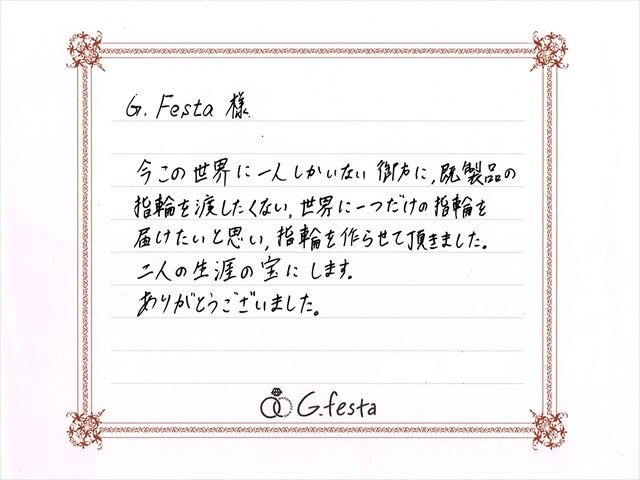 G. Festa 様
今この世界に一人しかいない御方に,既製品の
指輪を渡したくない,世界に一つだけの指輪を
届けたいと思い,指輪を作らせて頂きました。
二人の生涯の宝にします。
ありがとうございました。
G.festa